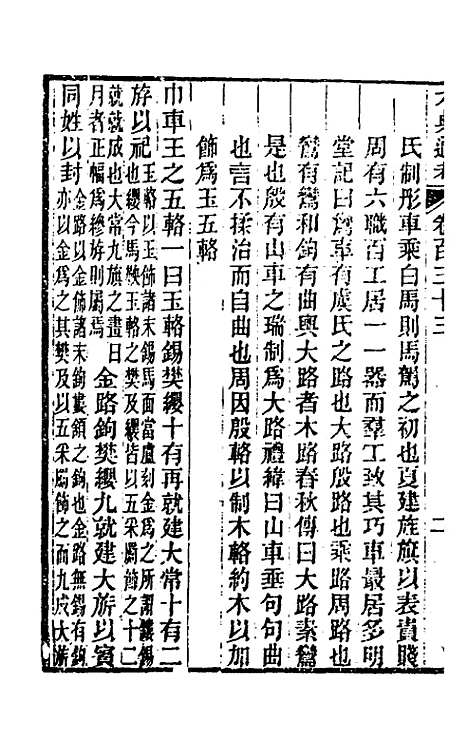 六典通考 卷百三十三 二
氏制彤車乘白馬則馬駕之初也夏建旌旗以表貴賤
周有六職百工居一一器而羣工致其巧車最居多明
堂記曰鸞車有虞氏之路也大路殷路也乘路周路也
鸞有鸞和鉤有曲輿大路者木路春秋傳曰大路素鸞
是也殷有山車之瑞制爲大路禮緯曰山車垂句句曲
也言不揉治而自曲也周因殷輅以制木輅約木以加
飾爲玉五輅
巾車王之五輅一曰玉輅錫樊纓十有再就建大常十有二
斿以祀玉輅以玉飾諸末錫馬面當盧刻金爲之所謂鏤錫
也纓今馬鞅玉輅之樊及纓皆以五采罽飾之十二
就就成也大常九旗之畫日
月者正幅爲縿斿則屬焉金路鉤樊纓九就建大旂以賓
同姓以封金路以金飾諸末鉤婁頷之鉤也金路無錫有鉤
亦以金爲之其樊及以五采罽飾之而九成大旂